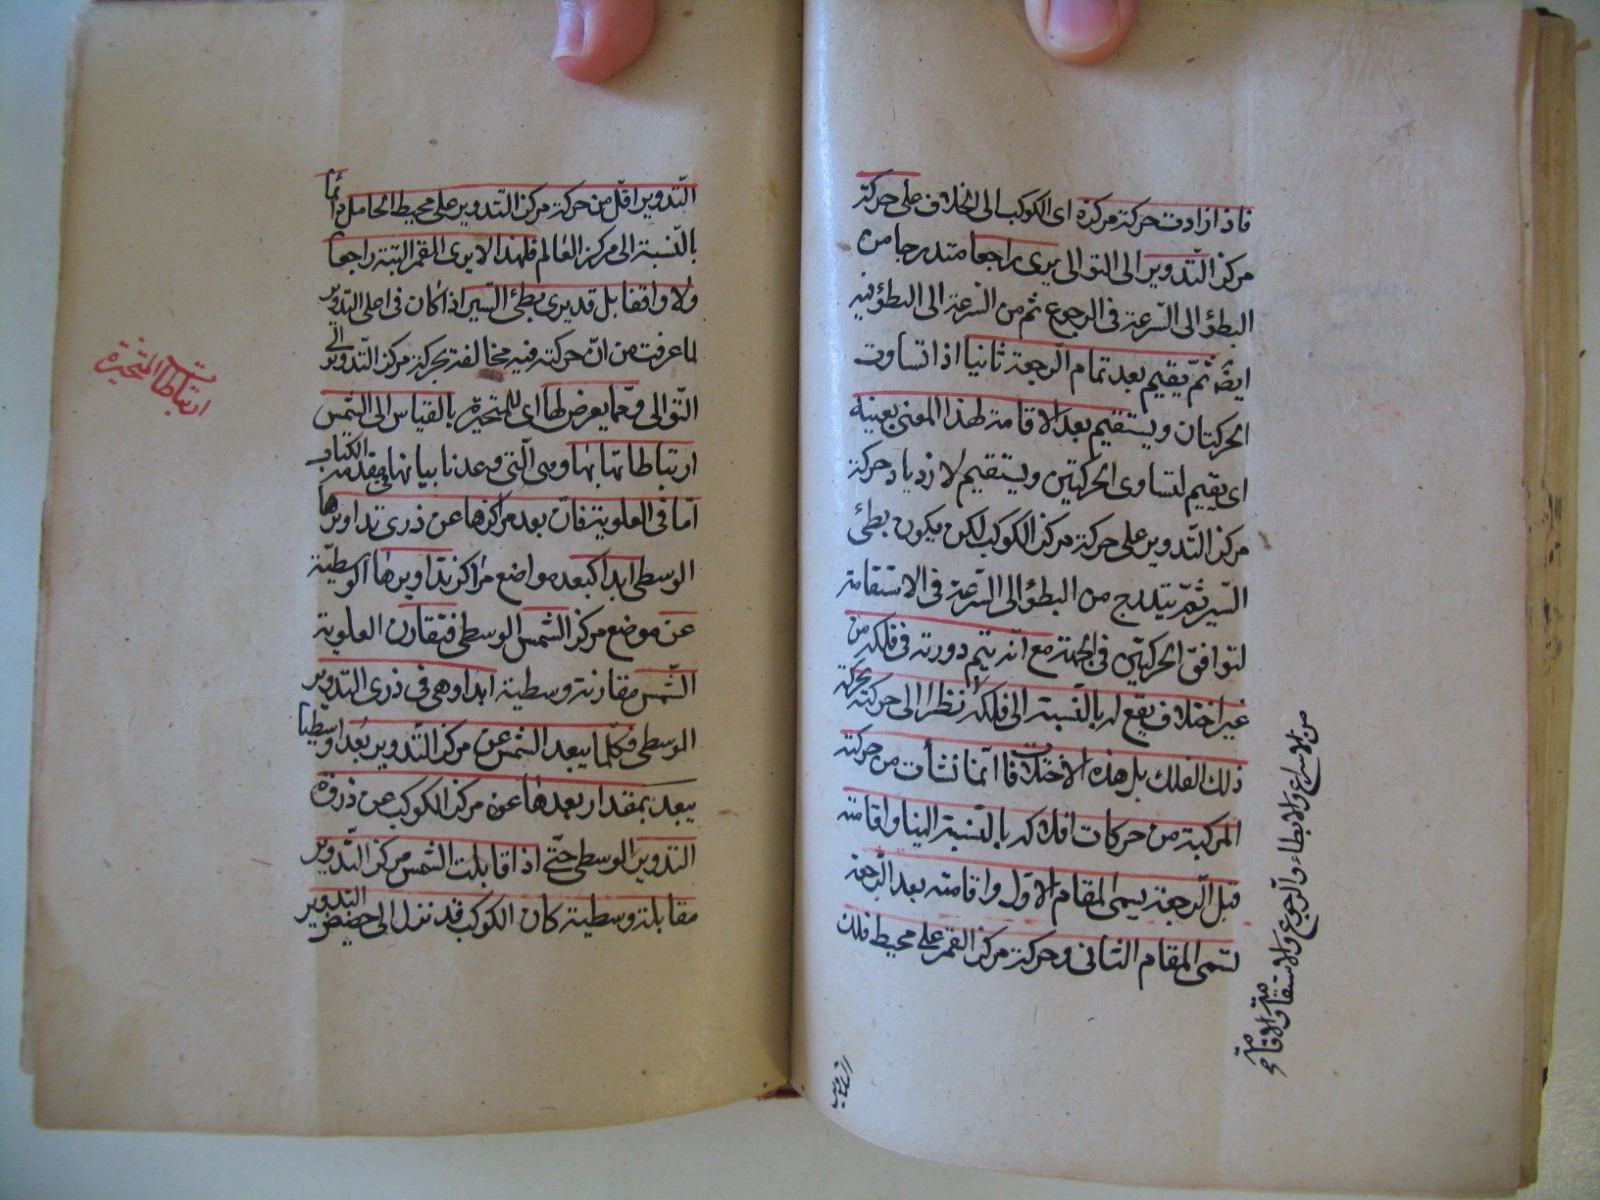 فاذا ازدادت حركة مركزه اى الكوكب الى الخلاف على حركة
مركز التّدوير الى التوالى يرى راجعا متدرجا من
البطؤ الى السّرعة فى الرجوع ثم من السّرعة الى البطؤ فيه
ايضا ثمّ يقيم بعد تمام الرّجعة ثانيا اذا تساوت
الحركتان ويستقيم بعد الاقامة لهذا المعنى بعينه
اى يقيم لتساوى الحركتين ويستقيم لازدياد حركة
مركز التّدوير على حركة مركز الكوكب لكن يكون بطئ
السّير ثمّ يتدرج من البطؤ الى السّرعة فى الاستقامة
لتوافق الحركتين فى الجهة مع انّه يتم دورته فى فلكه من
غير اختلاف يقع له بالنّسبة الى فلكه نظرا الى حركته بحركة
ذلك الفلك بل هذه الاختلافات انّما نشأت من حركته
المركبة من حركات افلاكه بالنّسبة الينا واقامته
قبل الرّجعة يسمى المقام الاوّل واقامته بعد الرّجعة
تسمى المقام الثانى وحركة مركز القمر على محيط فلك
من الاسراع والابطاء والرّجوع والاستقامة والاقامة
التّدوير اقلّ من حركة مركز التّدوير على محيط الحامل دائما
بالنّسبة الى مركز العالم فلهذا لا يرى القمر البتة راجعا
ولا واقفا بل قد يرى بطئ السّير اذا كان فى اعلى التدوير
لما عرفت من انّ حركته فيه مخالفة لحركة مركز التّدوير الى
التّوالى وممّا يعرض لها اى للمتحيرة بالقياس الى الشّمس
ارتباطاتها بها وهى الّتى وعدنا بيانها فى مقدمة الكتاب
امّا فى العلوية فانّ بعد مراكزها عن ذرى تداويرها
الوسطى ابدا كبعد مواضع مراكز تداويرها الوسطيّة
عن موضع مركز الشّمس الوسطى فتقارن العلوية
الشّمس مقارنة وسطية ابدا وهى فى ذرى التدوير
الوسطى فكلّما يبعد الشمس عن مركز التّدوير بُعدا وسطيا
يبعد بمقدار بعدها عنه مركز الكوكب عن ذروة
التدوير الوسطى حتّى اذا قابلت الشّمس مركز التّدوير
مقابلة وسطية كان الكوكب قد نزل الى حضيض التدوير
ارتباطات المتحيرة